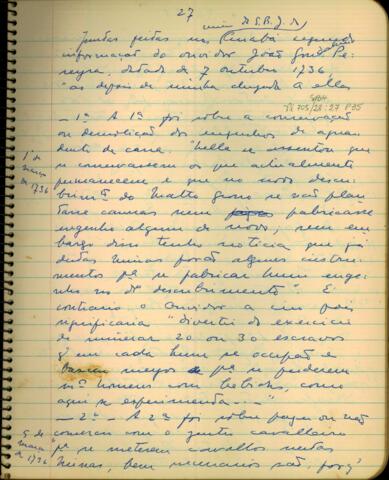 27
Juntas feitas no Cuiabá segundo
informação do ouvidor João Gonçl Pe-
reyra, datada de 7 outubro 1736
"as depois de minha chegada a ellas
— 1ª A 1ª foi sobre a conservação
ou demolição dos engenhos de aguar
dente de cana. "nella se assentou que
se conservassem os que actualmente
permanecem e que no novo descu-
brimto do Matto Grosso se não plan
tasse cannas nem fabricasse
engenho algum de novo, sem em
bargo disso tenho noticia que já
destas minas forão alguns instru-
mentos pª se fabricar hum enge-
nho no dº descobrimento". É
contrario o Ouvidor a
significaria "divertir do exercicio
de minerar 20 ou 30 escravos
q' em cada hum se occupão e
pª se puderem
homens com
aqui se experimenta..."
— 2ª — A 2ª foi sobre
com o gentio cavalleiro
"pª se meterem cavallos nestas
Minas, bem necessarios são, porq'
1º de
março
1736
5 de
março
de 1736